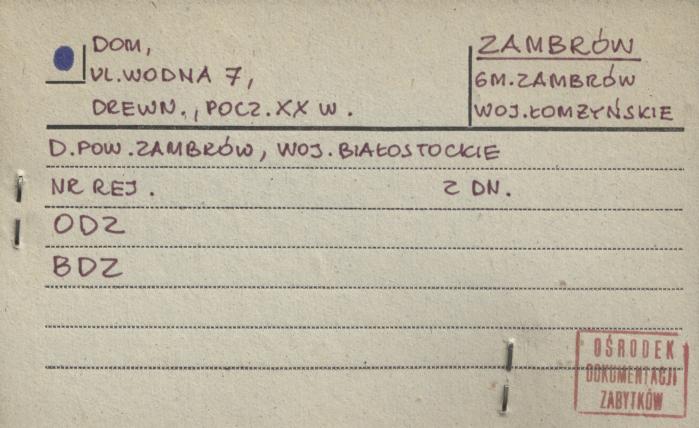 DOM,
UL.WODNA 7,
DREWN., POCZ.XX W.
ZAMBRÓW
GM.ZAMBRÓW
WOJ.ŁOMŻYŃSKIE
D.POW.ZAMBRÓW, WOJ.BIAŁOSTOCKIE
NR REJ. Z DN.
ODZ
BDZ
OŚRODEK
DOKUMENTACJI
ZABYTKÓW